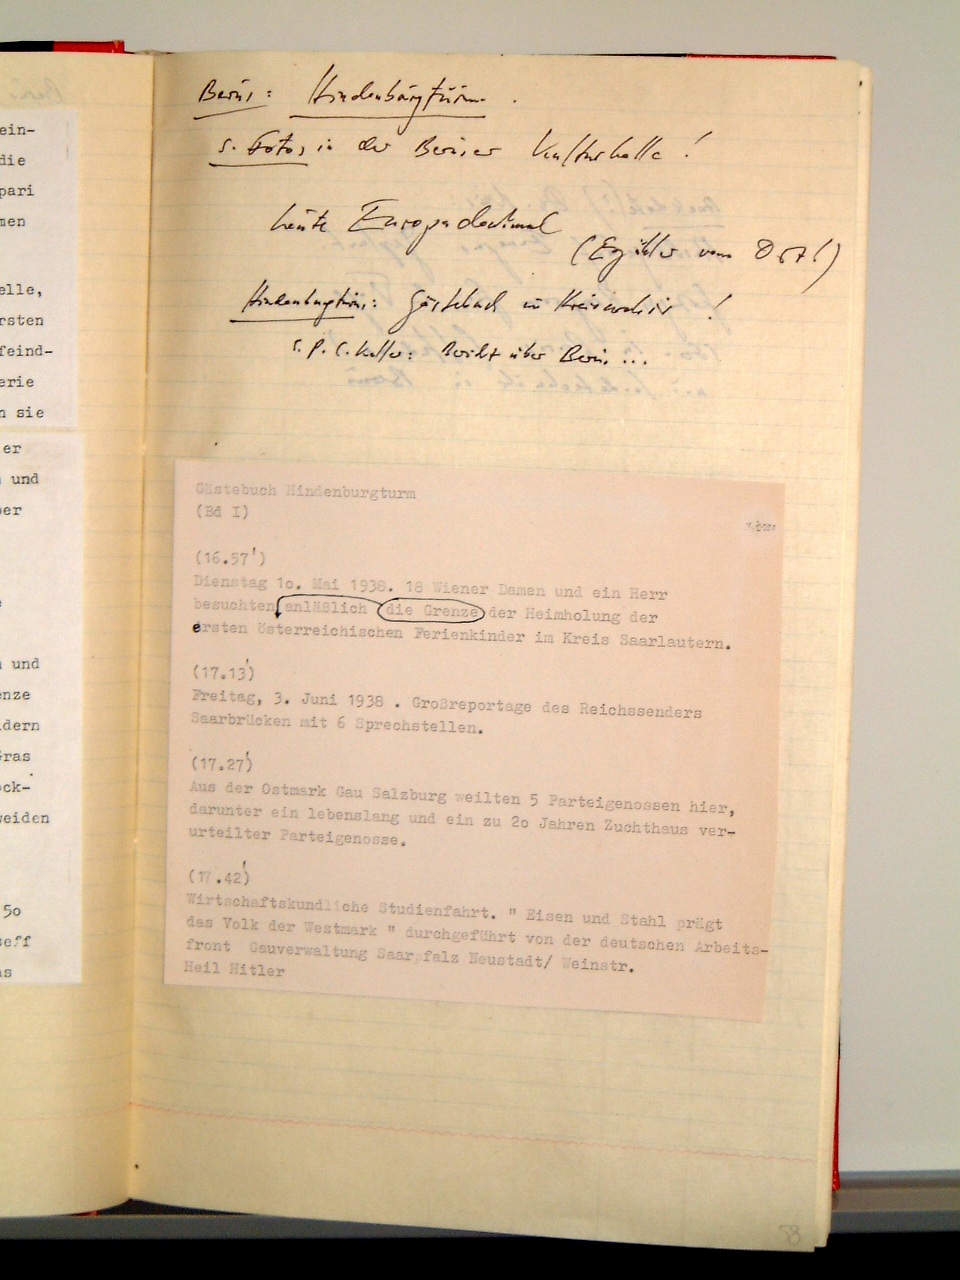 ein-
die
pari
men
elle,
rsten
feind-
erie
n sie
er
und
er
und
enze
dern
Gras
ck-
weiden
50
seff
as
Berus: Hindenburgturm.
s. Fotos in der Beruser Kulturhalle!
heute Europadenkmal
(Erzähler vom Ort!)
Hindenburgturm: Gästebuch im Kreisarchiv!
s. P. C. Keller: Bericht über Berus ...
Gästebuch Hindenburgturm
(Bd I)
(16.57')
Dienstag 1o. Mai 1938. 18 Wiener Damen und ein Herr
besuchten anläßlich die Grenze der Heimholung der
ersten österreichischen Ferienkinder im Kreis Saarlautern.
(17.13')
Freitag, 3. Juni 1938 . Großreportage des Reichssenders
Saarbrücken mit 6 Sprechstellen.
(17.27')
Aus der Ostmark Gau Salzburg weilten 5 Parteigenossen hier,
darunter ein lebenslang und ein zu 2o Jahren Zuchthaus ver-
urteilter Parteigenosse.
(17.42')
Wirtschaftskundliche Studienfahrt. " Eisen und Stahl prägt
das Volk der Westmark " durchgeführt von der deutschen Arbeits-
front Gauverwaltung Saarpfalz Neustadt/ Weinstr.
Heil Hitler
58